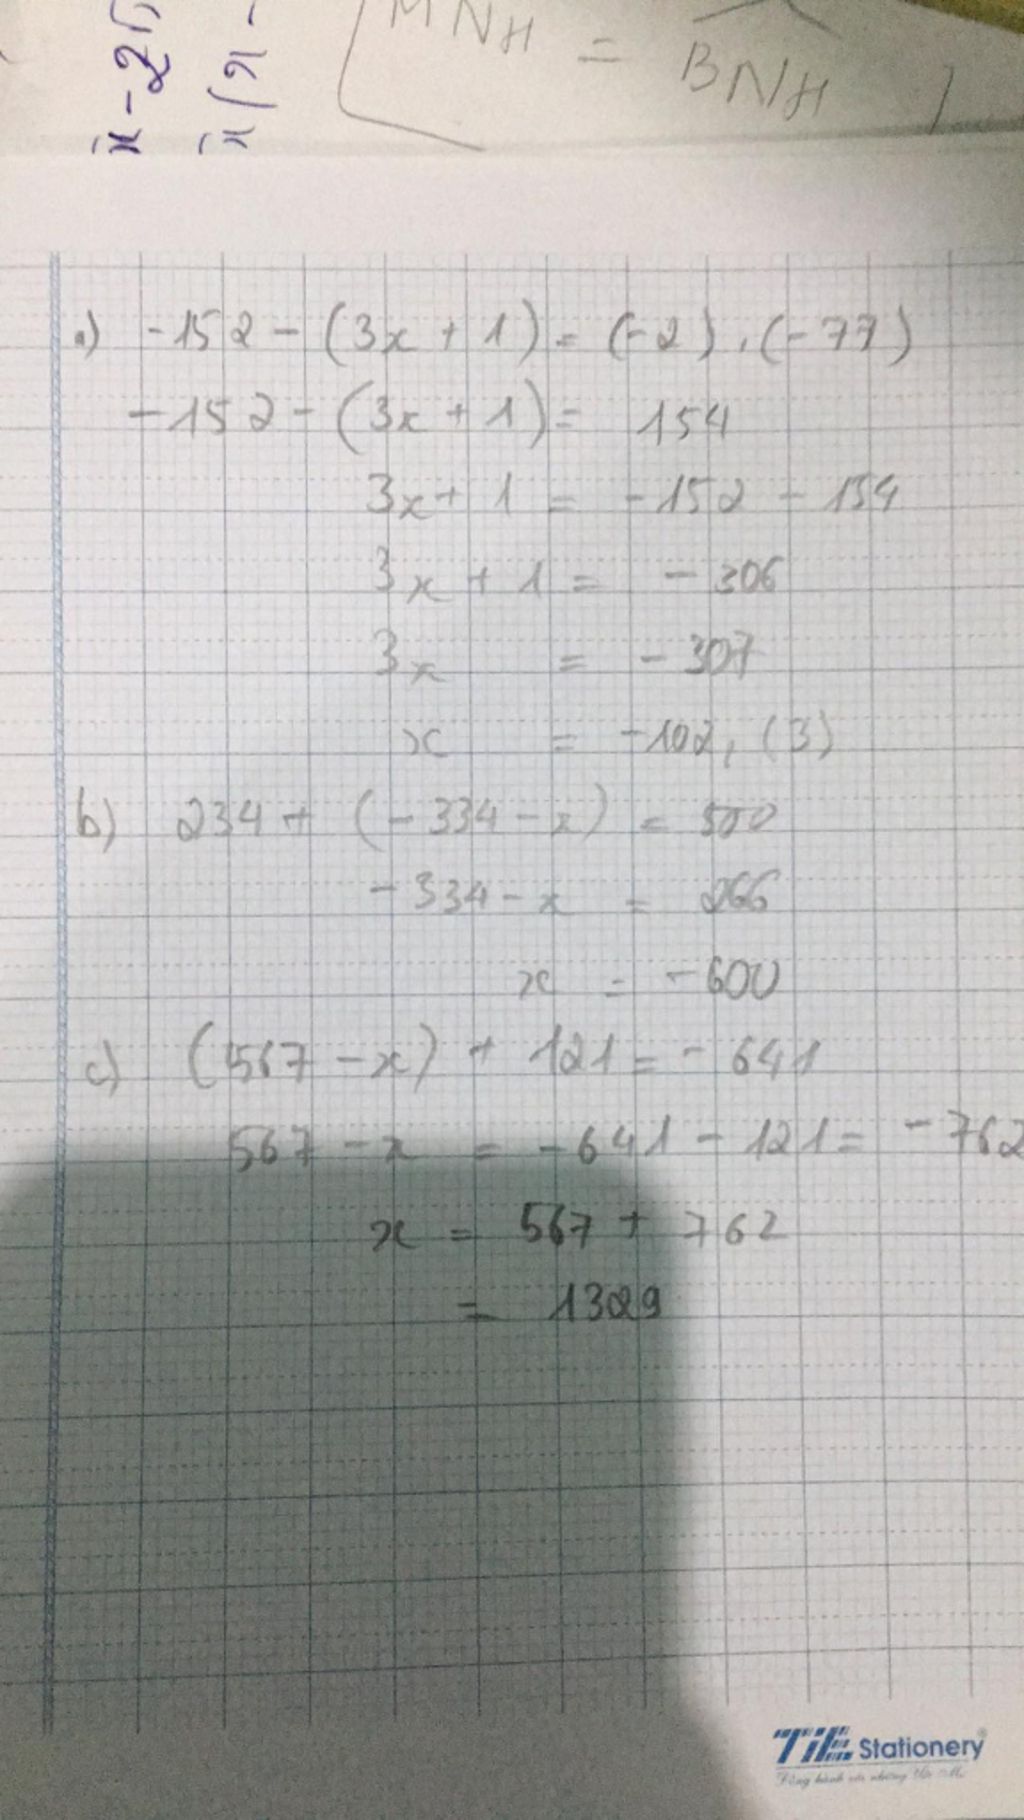 MNH = BNH
a) -152 - (3x + 1) = (-2) . (-77)
-152 - (3x + 1) = 154
3x + 1 = -152 - 154
3x + 1 = -306
3x = -307
x = -102,(3)
b) 234 + (-334 - x) = 500
-334 - x = 266
x = -600
c) (567 - x) + 121 = -641
567 - x = -641 - 121 = -762
x = 567 + 762
= 1329
TiE Stationery